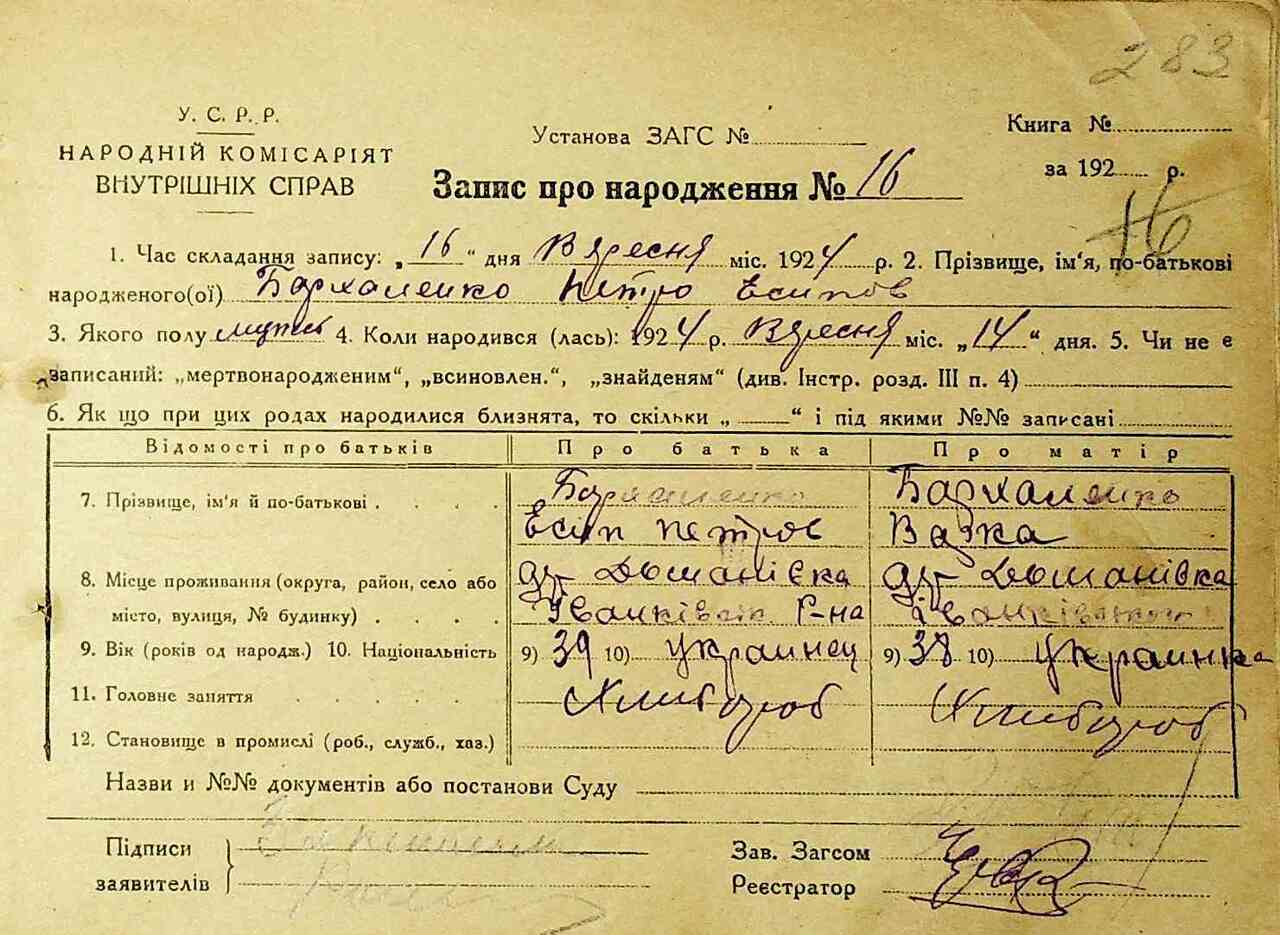 283
У. С. Р. Р.
НАРОДНІЙ КОМІСАРІЯТ
ВНУТРІШНІХ СПРАВ
Установа ЗАГС №
Книга №
за 192 р.
Запис про народження № 16
16
1. Час складання запису: „16“ дня Вяресня міс. 1924 р. 2. Прізвище, ім'я, по-батькові
народженого(ої) Бархаленко Петро Есипов
3. Якого полу 4. Коли народився (лась): 1924 р. Вяресня міс. „14“ дня. 5. Чи не є
записаний: „мертвонародженим“, „всиновлен.“, „знайденям“ (див. Інстр. розд. III п. 4)
6. Як що при цих родах народилися близнята, то скільки „ “ і під якими №№ записані
Відомості про батьків Про батька Про матір
7. Прізвище, ім'я й по-батькові . . . . Бархаленко Бархаленко
Есип Петров
8. Місце проживання (округа, район, село або Доманівка Доманівка
місто, вулиця, № будинку) . . . . Іванківск. Р-на
9. Вік (років од народж.) 10. Національність 9) 39 10) украинец 9) 38 10) украинка
11. Головне заняття . . . . Хлибороб Хлибороб
12. Становище в промислі (роб., служб., хаз.)
Назви и №№ документів або постанови Суду
Підписи
заявителів
Зав. Загсом
Реєстратор